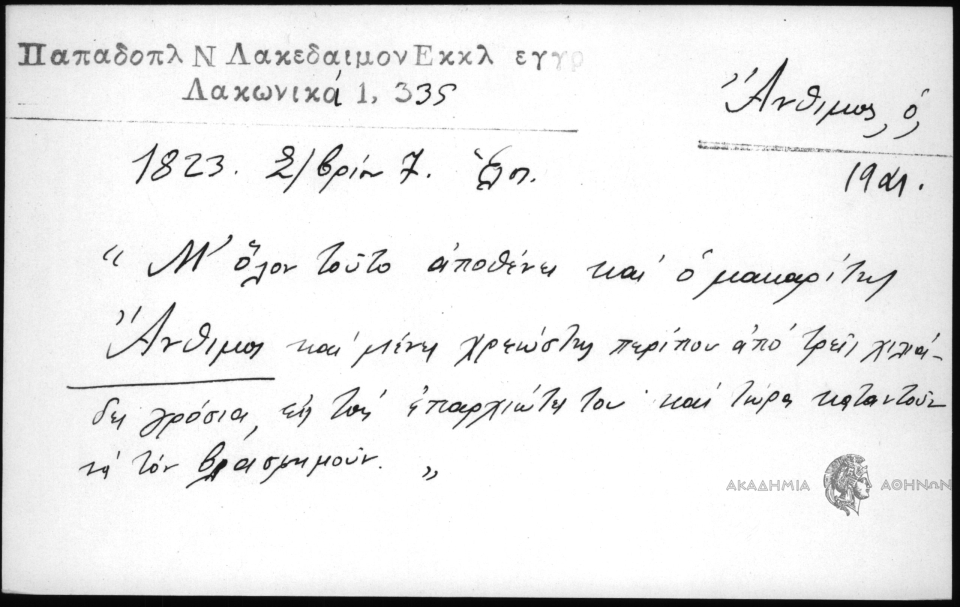 Παπαδοπλ Ν Λακεδαιμον Εκκλ εγγρ
Λακωνικά 1, 335
Ἄνθιμος, ὁ,
1823. 2/βρίου 7. Ἐπ.
19 αἰ.
“ Μ' ὅλον τοῦτο ἀποθένει καί ὁ μακαρίτης
Ἄνθιμος καί μένει χρεώστης περίπου ἀπό τρεῖς χιλιά-
δες γρόσια, εἰς τούς ἐπαρχιώτες του καί τώρα καταντοῦν
νά τόν βλασφημοῦν. ”
ΑΚΑΔΗΜΙΑ ΑΘΗΝΩΝ